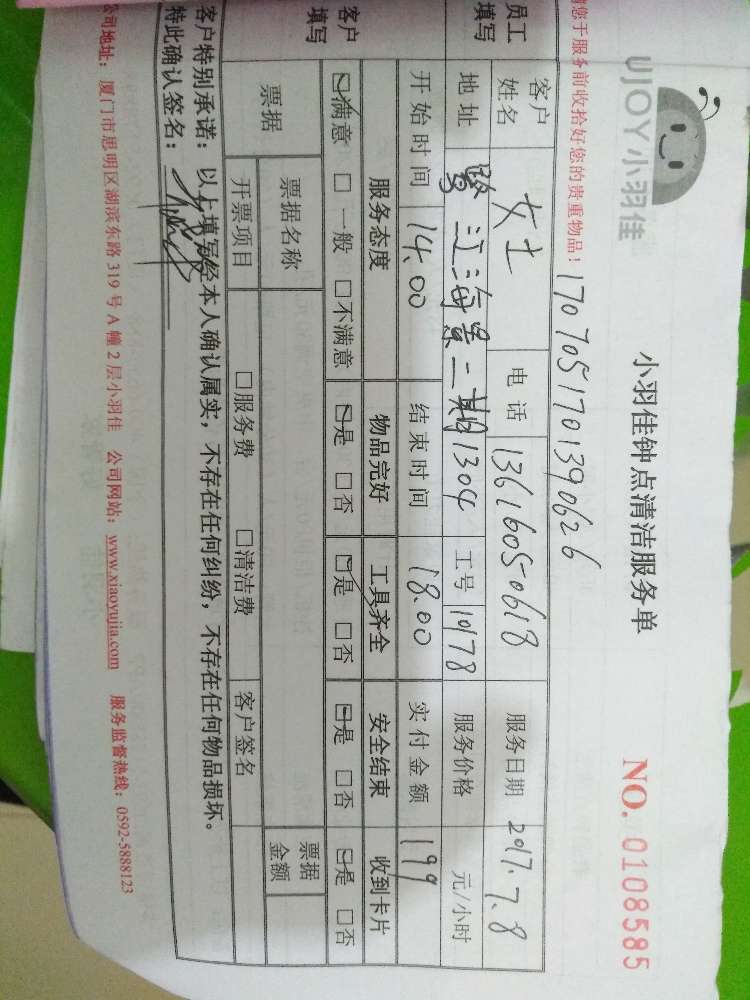 UJOY小羽佳
小羽佳钟点清洁服务单
NO. 0108585
您于服务前收拾好您的贵重物品！ 170705170139062 6
员工填写 客户姓名 女士 电话 13616050618 服务日期 2017.7.8
地址 鹭江海景二期1304 工号 10178 服务价格 元/小时
开始时间 14.00 结束时间 18.00 实付金额 199
客户填写 服务态度 物品完好 工具齐全 安全结束 收到卡片
☑满意 □一般 □不满意 ☑是 □否 ☑是 □否 ☑是 □否 ☑是 □否
票据 票据名称 票据金额
开票项目 □服务费 □清洁费 客户签名
客户特别承诺：以上填写经本人确认属实，不存在任何纠纷，不存在任何物品损坏。
特此确认签名：
公司地址：厦门市思明区湖滨东路319号A幢2层小羽佳 公司网站：www.xiaoyujia.com 服务监督热线：0592-5888123